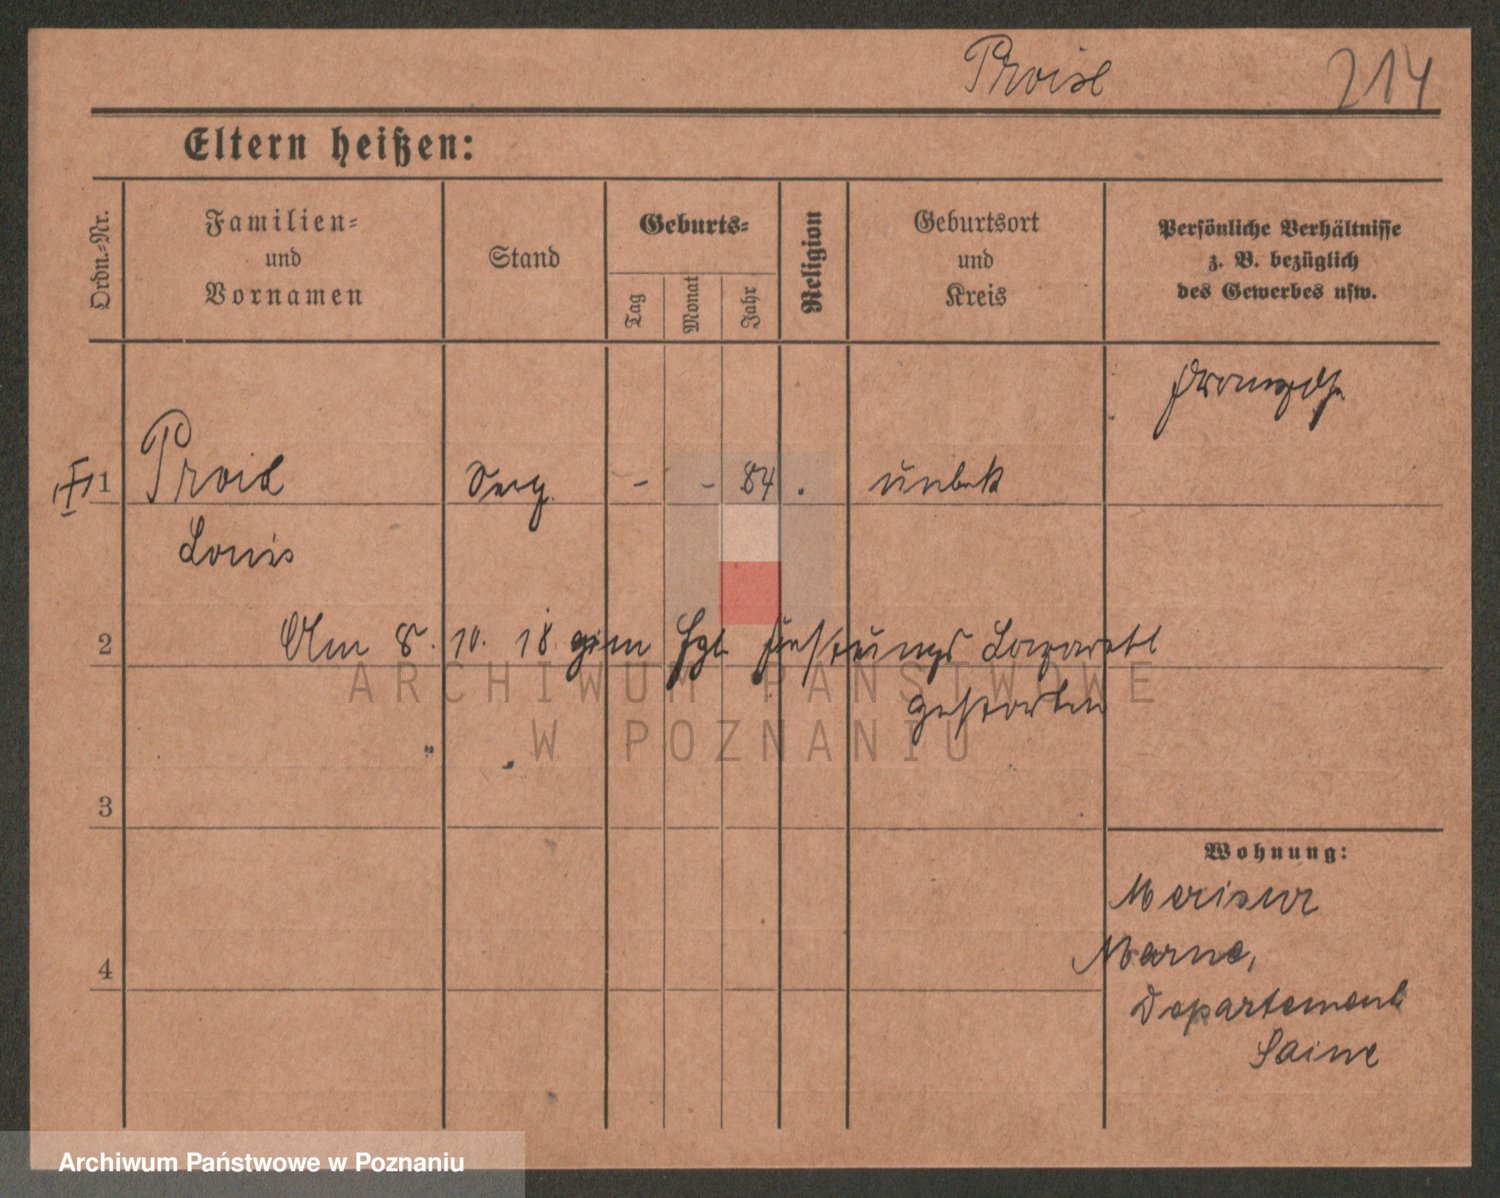 Proise 214
Eltern heißen:
Ordn.-Nr.
Familien-
und
Vornamen
Stand
Geburts-
Tag
Monat
Jahr
Religion
Geburtsort
und
Kreis
Persönliche Verhältnisse
z. B. bezüglich
des Gewerbes usw.
1 Serg. - - 84 . unbek
Louis
2 Am 8. 10. 18 im Festungs Lazarett
gestorben
3
4
Wohnung:
Marne,
Departement
Saine
ARCHIWUM PAŃSTWOWE
W POZNANIU
Archiwum Państwowe w Poznaniu